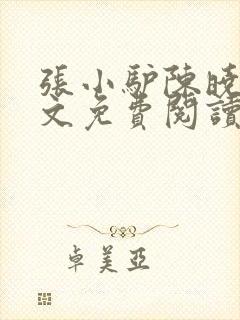 張小驴陳曉
文免費閱讀
卓美亞